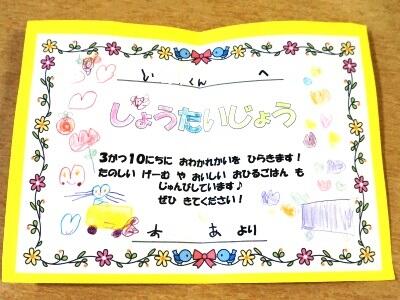 くん へ
しょうたいじょう
3がつ10にちに おわかれかいを ひらきます！
たのしい げーむ や おいしい おひるごはん も
じゅんびしています♪
ぜひ きてください！
あ より